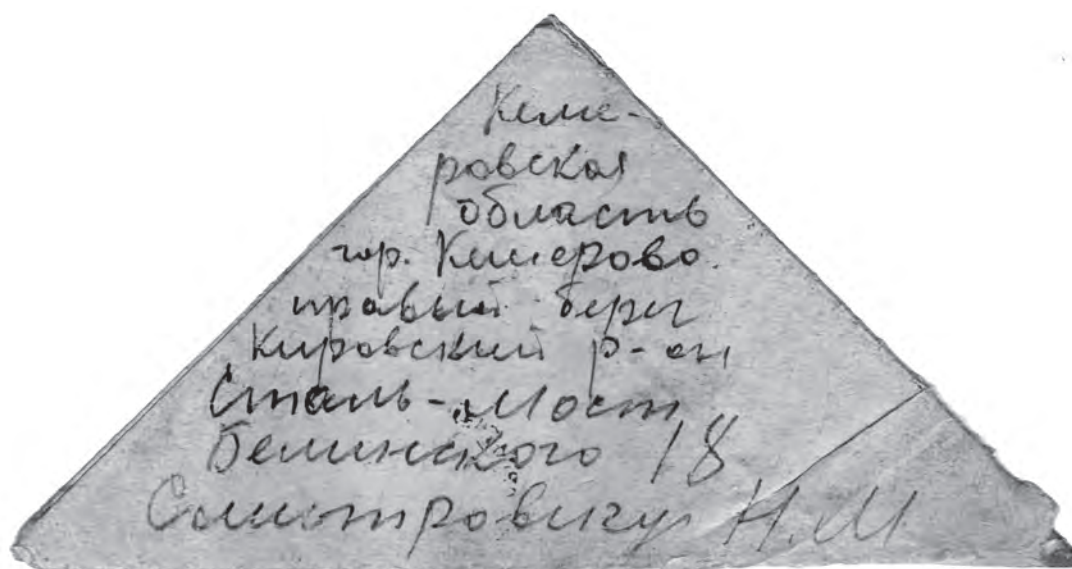 Кеме-
ровская
область
гор. Кемерово.
правый берег
Кировский р-он
Сталь-Мост
Белинского 18
Н.М